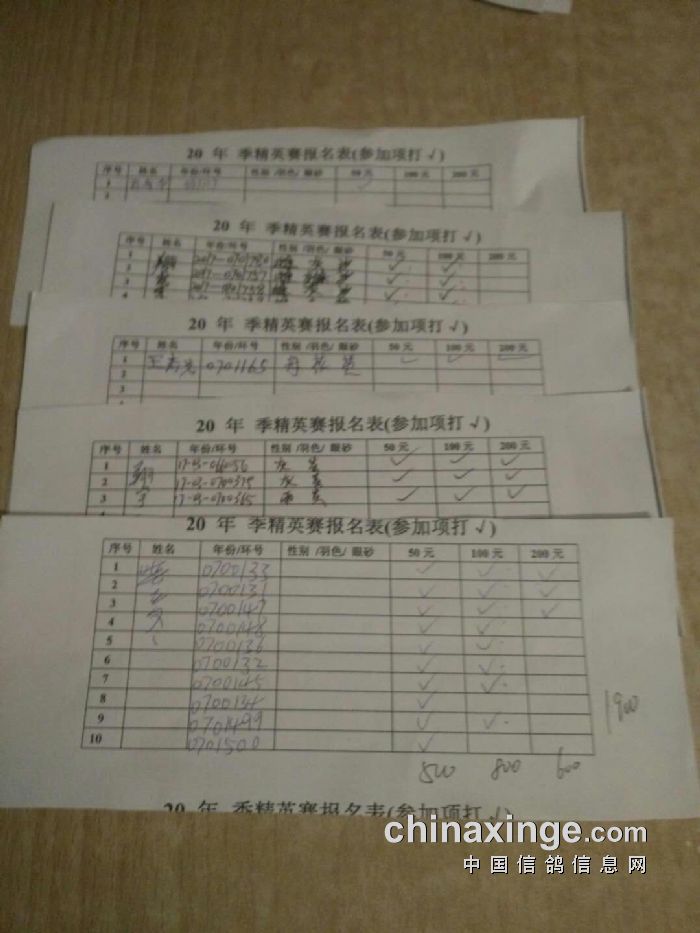 20 年 季精英赛报名表(参加项打√)
序号 姓名 年份/环号 性别 /羽色/ 眼砂 50 元 100 元 200 元
1 √
2
20 年 季精英赛报名表(参加项打√)
序号 姓名 年份/环号 性别 /羽色/ 眼砂 50 元 100 元 200 元
1 √ √
2 √ √
3 √ √
4 √ √
20 年 季精英赛报名表(参加项打√)
序号 姓名 年份/环号 性别 /羽色/ 眼砂 50 元 100 元 200 元
1 0701165 √ √ √
2
3
20 年 季精英赛报名表(参加项打√)
序号 姓名 年份/环号 性别 /羽色/ 眼砂 50 元 100 元 200 元
1 灰 √ √ √
2 17-03-0700375 灰 黄 √ √ √
3 17-03-0700365 黄 √ √ √
20 年 季精英赛报名表(参加项打√)
序号 姓名 年份/环号 性别 /羽色/ 眼砂 50 元 100 元 200 元
1 0700133 √ √ √
2 0700131 √ √ √
3 0700147 √ √ √
4 0700148 √ √
5 0700136 √ √
6 0700132 √ √
7 0700145 √ √
8 0700134 √
9 0701499 √ √
10 0701500 √
1900
500 800 600
20 年 季精英赛报名表(参加项打√)
chinaxinge.com
中国信鸽信息网